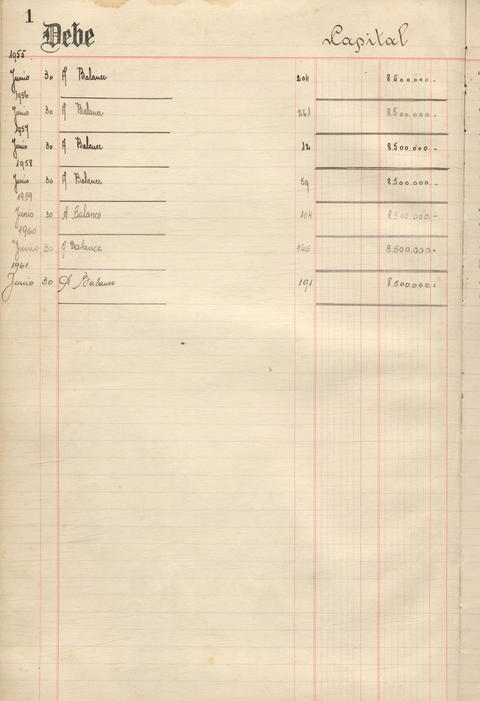 1
Debe Capital
1955
Junio 30 A Balance 204 8.500.000.-
1956
Junio 30 A Balance 261 8.500.000.-
1957
Junio 30 A Balance 12 8.500.000.-
1958
Junio 30 A Balance 59 8.500.000.-
1959
Junio 30 A Balance 104 8.500.000.-
1960
Junio 30 A Balance 165 8.500.000.-
1961
Junio 30 A Balance 191 8.500.000.-